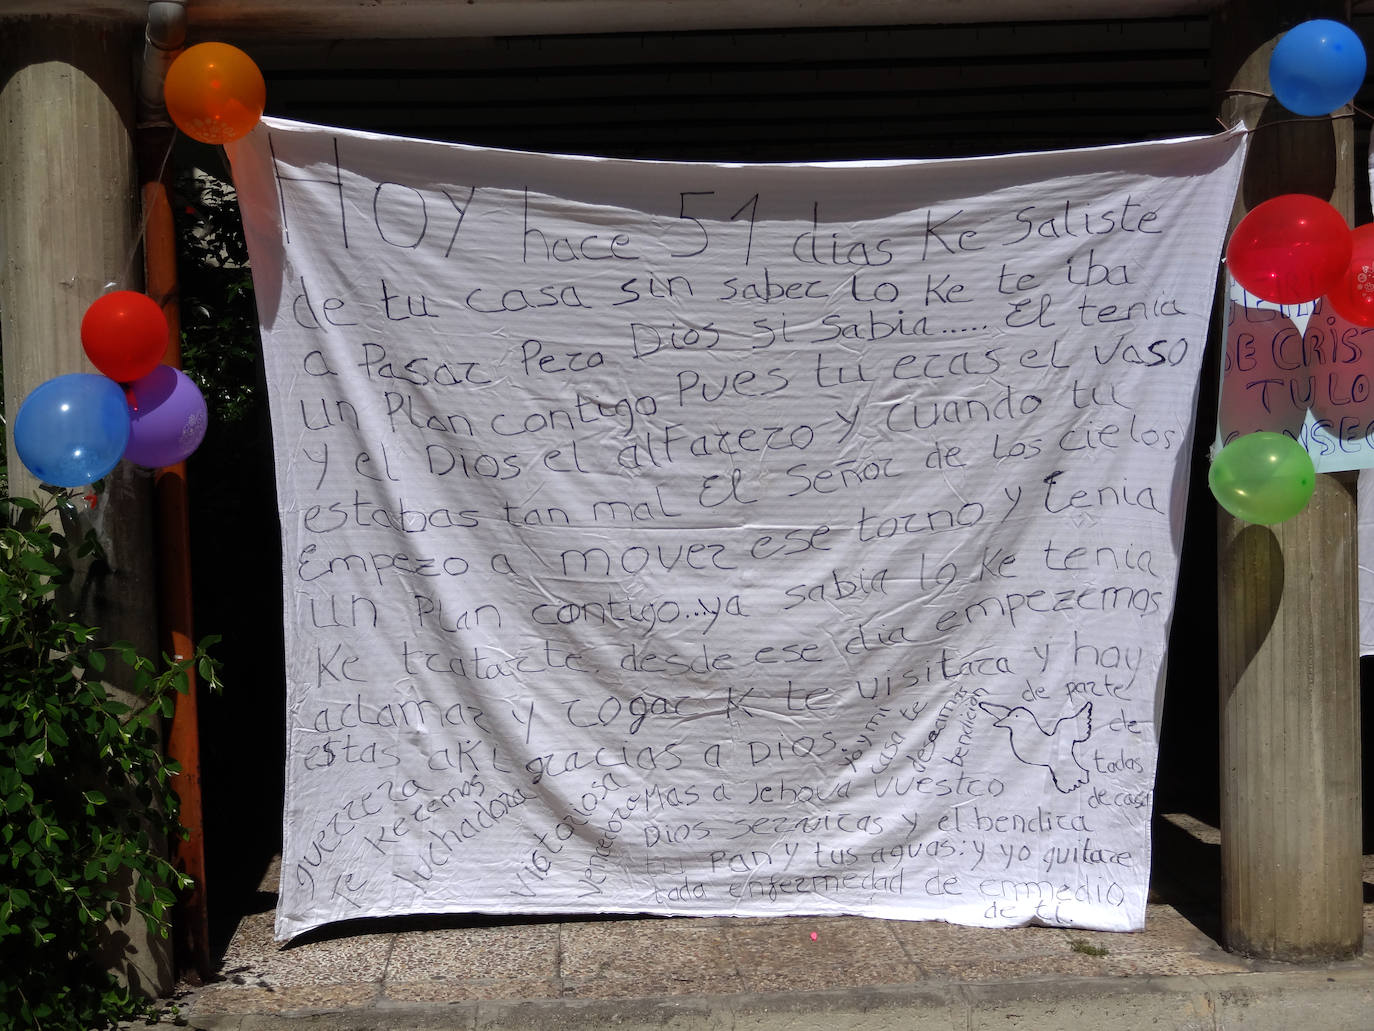 HOY hace 51 dias Ke Saliste
de tu casa sin saber lo Ke te iba
a Pasar Pero Dios si sabia..... El tenia
un Plan contigo Pues tu eras el vaso
y el Dios el alFarero y cuando tu
estabas tan mal El señor de los cielos
Empezo a mover ese torno y tenia
un Plan contigo...ya sabia lo Ke tenia
Ke tratarte desde ese dia empezemos
aclamar y rogar K te visitara y hoy
estas aKi gracias a Dios.
yo y mi
casa te
deseamos
bendición
de parte
de
todas
de casa
guerrera
te Keremos
luchadora
victoriosa
vencedora
Mas a Jehova vuestro
Dios serviras y el bendira
tu Pan y tus aguas: y yo quitare
toda enfermedad de enmedio
de ti.
DE CRIST
TU LO